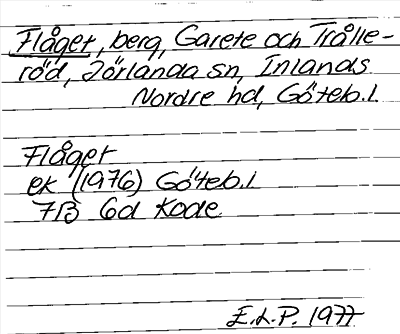 Flåget, berg, Garete och Trålle-
röd, Jörlanda sn, Inlands
Nordre hd, Göteb.l.
Flåget
ek (1976) Göteb.l.
7B 6d Kode
E.L.P. 1977